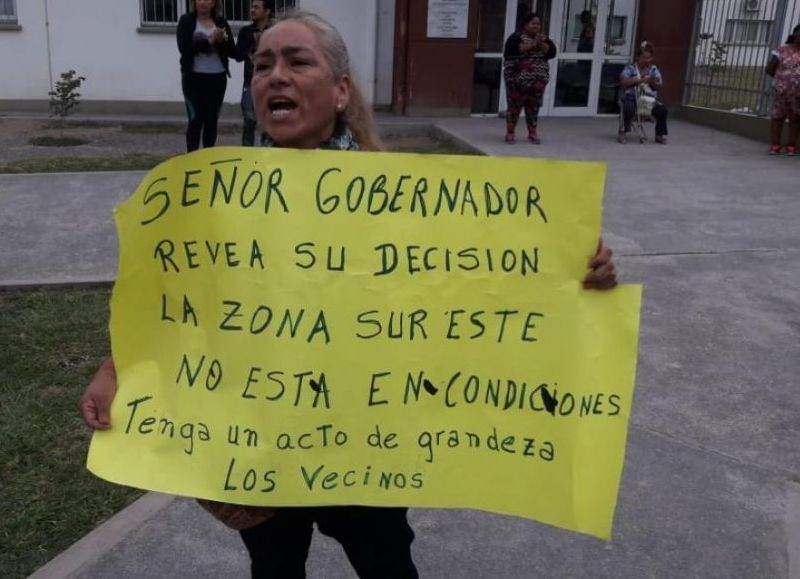 SEÑOR GOBERNADOR
REVEA SU DECISION
LA ZONA SUR ESTE
NO ESTA EN CONDICIONES
Tenga un acto de grandeza
LOS VECINOS